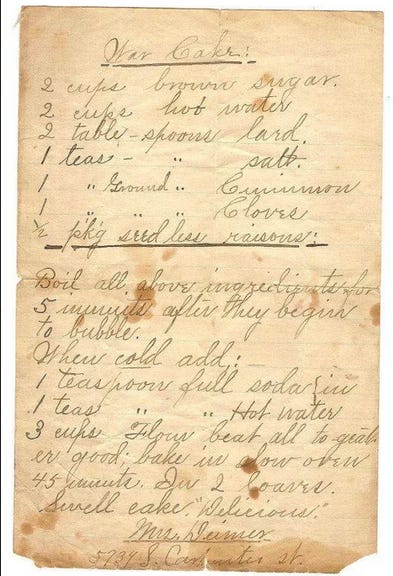 War Cake:
2 cups brown sugar.
2 cups hot water
2 table-spoons lard.
1 teas- " salt.
1 " Ground " Cinnimon
1 " " " Cloves
½ p'k'g seedless raisons:
Boil all above ingredients for
5 minuits after they begin
to bubble.
When cold add:-
1 teaspoon full soda } in
1 teas " " Hot water
3 cups Flour beat all to geath-
er good; bake in slow oven
45 minuits. In 2 loaves.
Swell cake. "Delicious."
Mrs. Deimer
5737 S. Carpenter st.